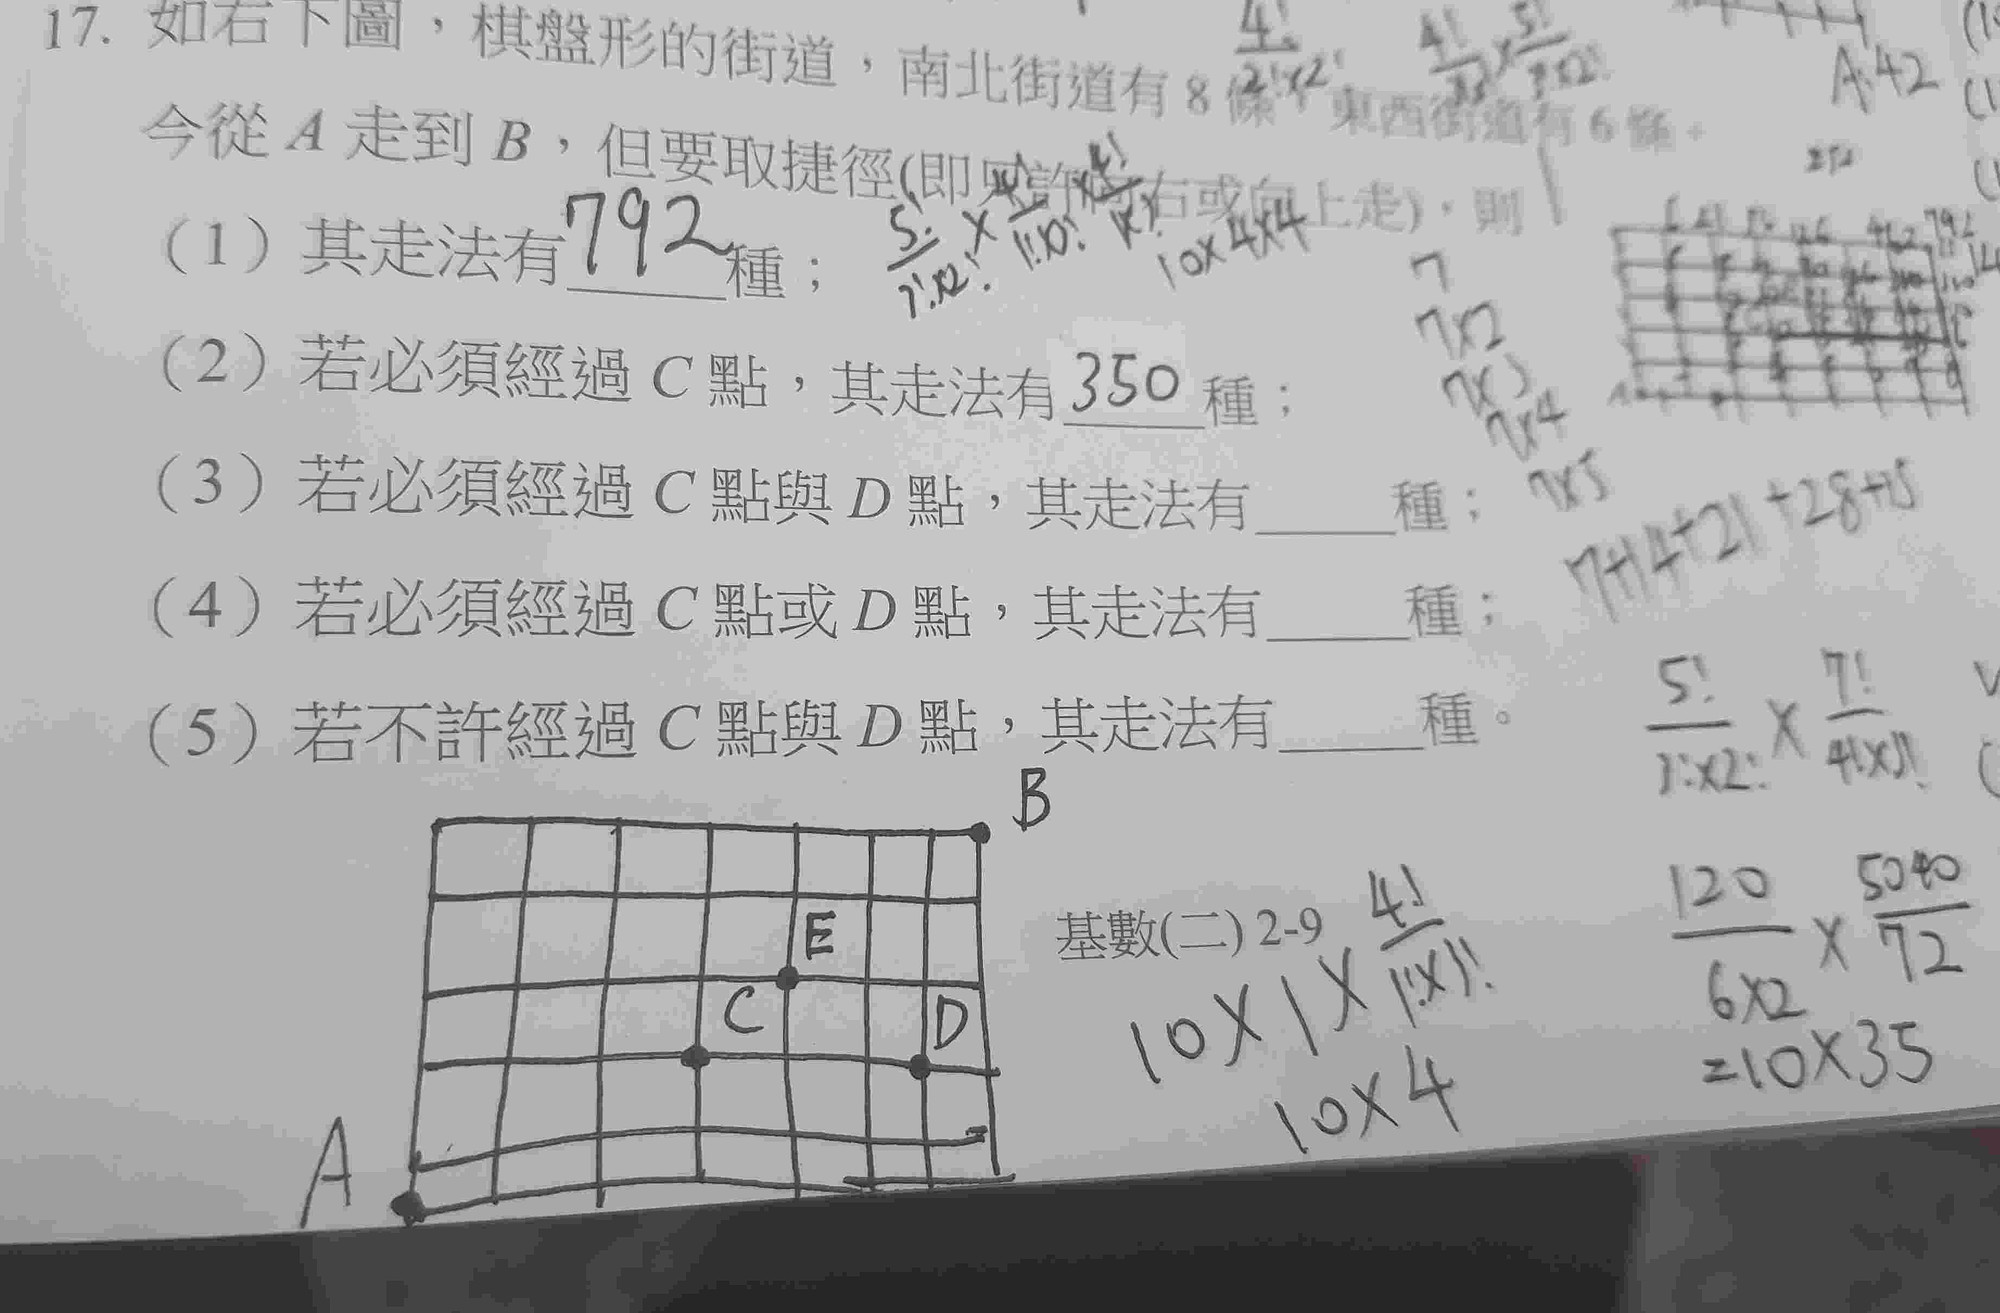 17. 如右下圖，棋盤形的街道，南北街道有 8 條，東西街道有 6 條。
今從 A 走到 B，但要取捷徑(即只許向右或向上走)，則
(1) 其走法有792種；
(2) 若必須經過 C 點，其走法有350種；
(3) 若必須經過 C 點與 D 點，其走法有____種；
(4) 若必須經過 C 點或 D 點，其走法有____種；
(5) 若不許經過 C 點與 D 點，其走法有____種。
4!/2!×2!
A:42
252
10×4×4
7
7×2
7×3
7×4
7×5
7+14+21+28+35
5!/3!×2! × 7!/4!×3!
120/6×2 × 5040/72
=10×35
B
E
C
D
A
基數(二) 2-9
10×1× 4!/1!×3!
10×4